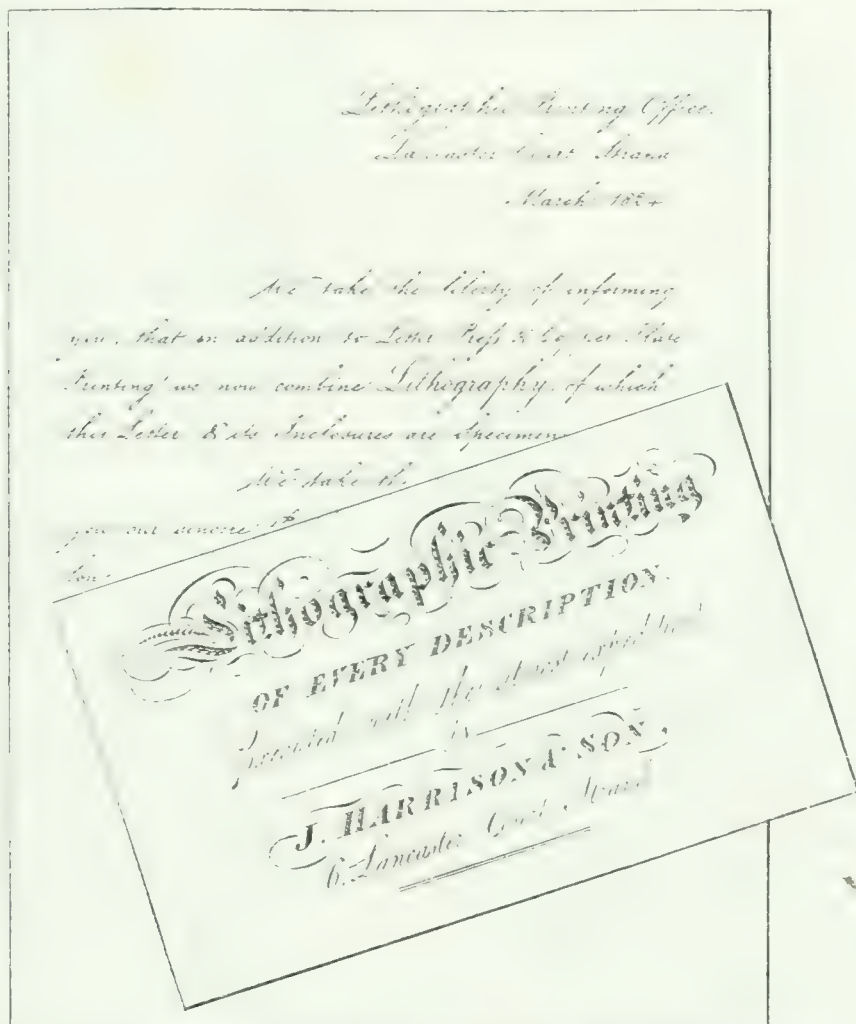 Lithographic Printing Office.
Lancaster Court Strand
March 1824
We take the liberty of informing
you, that in addition to Letter Press & Copper Plate
Printing we now combine Lithography, of which
this Letter & its Inclosures are Specimen
We take th
you our sincere th
Lithographic Printing
OF EVERY DESCRIPTION.
Executed with the utmost expedition
by
J. HARRISON & SON,
6, Lancaster Court Strand